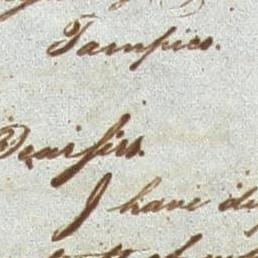 Tampico.
Dear Sirs.
I have